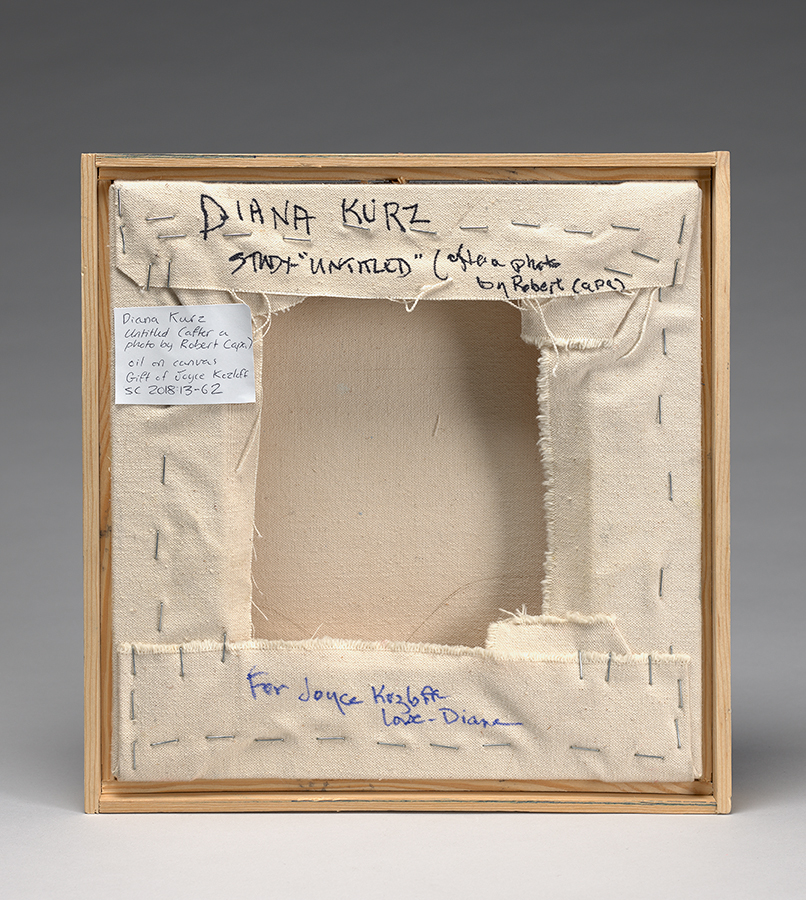 DIANA KURZ
STUDY-"UNTITLED" (after a photo
by Robert Capa)
Diana Kurz
Untitled (after a
photo by Robert Capa.)
oil on canvas
Gift of Joyce Kozloff
SC 2018:13-62
For Joyce Kozloff
Love-Diane